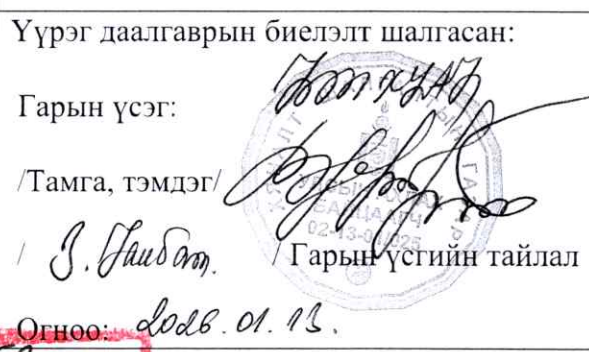 Үүрэг даалгаврын биелэлт шалгасан:
Гарын үсэг:
/Тамга, тэмдэг/
УЛСЫН
БАЙЦААГЧ
/ / Гарын үсгийн тайлал
Огноо: 2026.01.13.